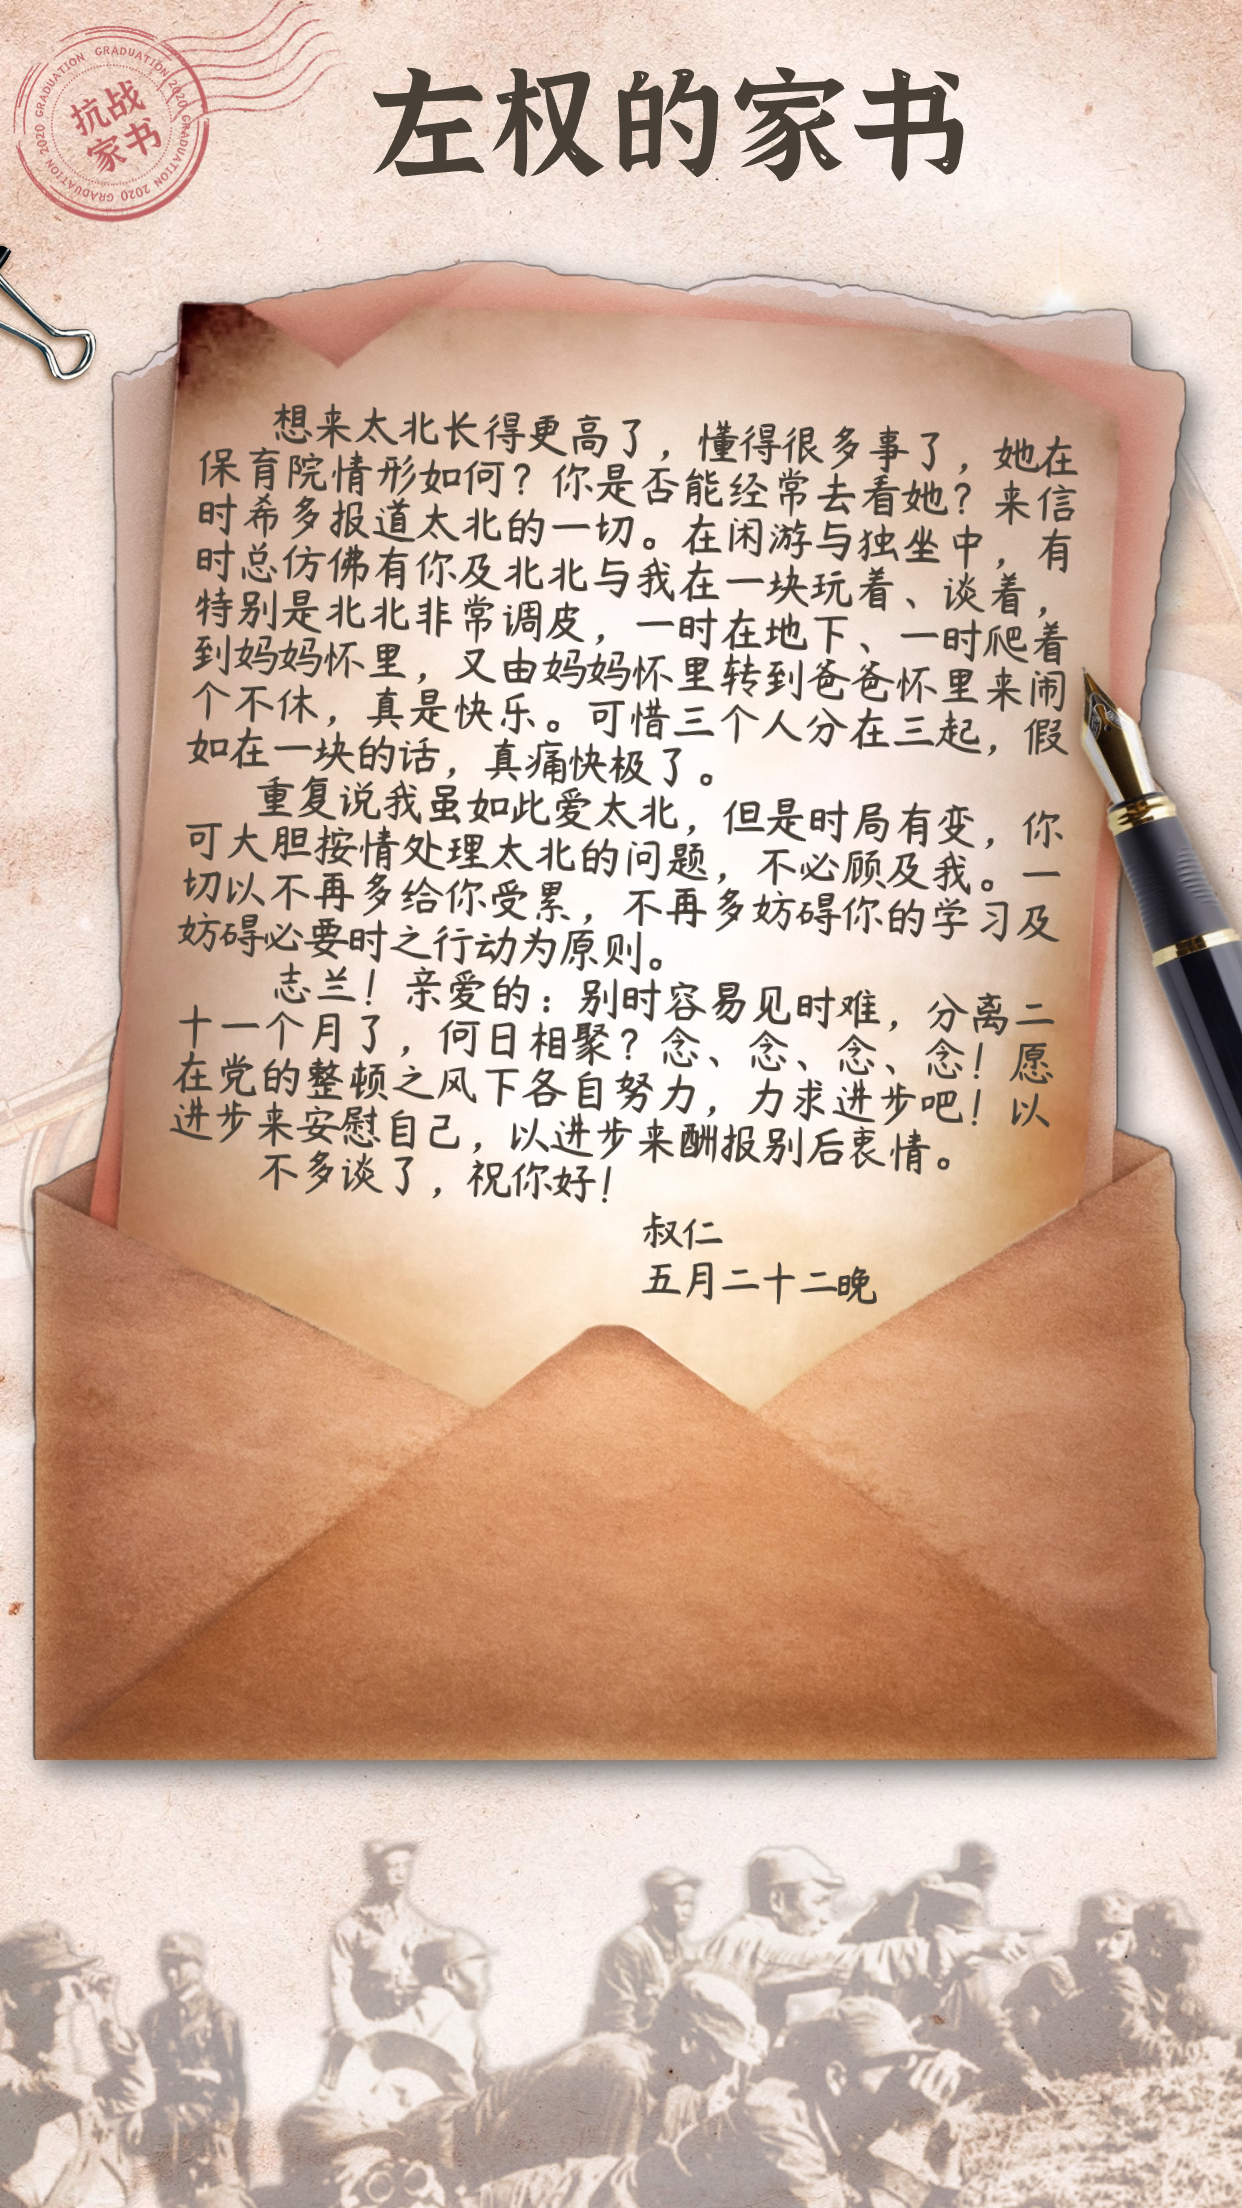 抗战
家书
GRADUATION 2020 GRADUATION 2020 GRADUATION 2020 GRADUATION
左权的家书
想来太北长得更高了，懂得很多事了，她在
保育院情形如何？你是否能经常去看她？来信
时希多报道太北的一切。在闲游与独坐中，有
时总仿佛有你及北北与我在一块玩着、谈着，
特别是北北非常调皮，一时在地下、一时爬着
到妈妈怀里，又由妈妈怀里转到爸爸怀里来闹
个不休，真是快乐。可惜三个人分在三起，假
如在一块的话，真痛快极了。
重复说我虽如此爱太北，但是时局有变，你
可大胆按情处理太北的问题，不必顾及我。一
切以不再多给你受累，不再多妨碍你的学习及
妨碍必要时之行动为原则。
志兰！亲爱的：别时容易见时难，分离二
十一个月了，何日相聚？念、念、念、念！愿
在党的整顿之风下各自努力，力求进步吧！以
进步来安慰自己，以进步来酬报别后衷情。
不多谈了，祝你好！
叔仁
五月二十二晚